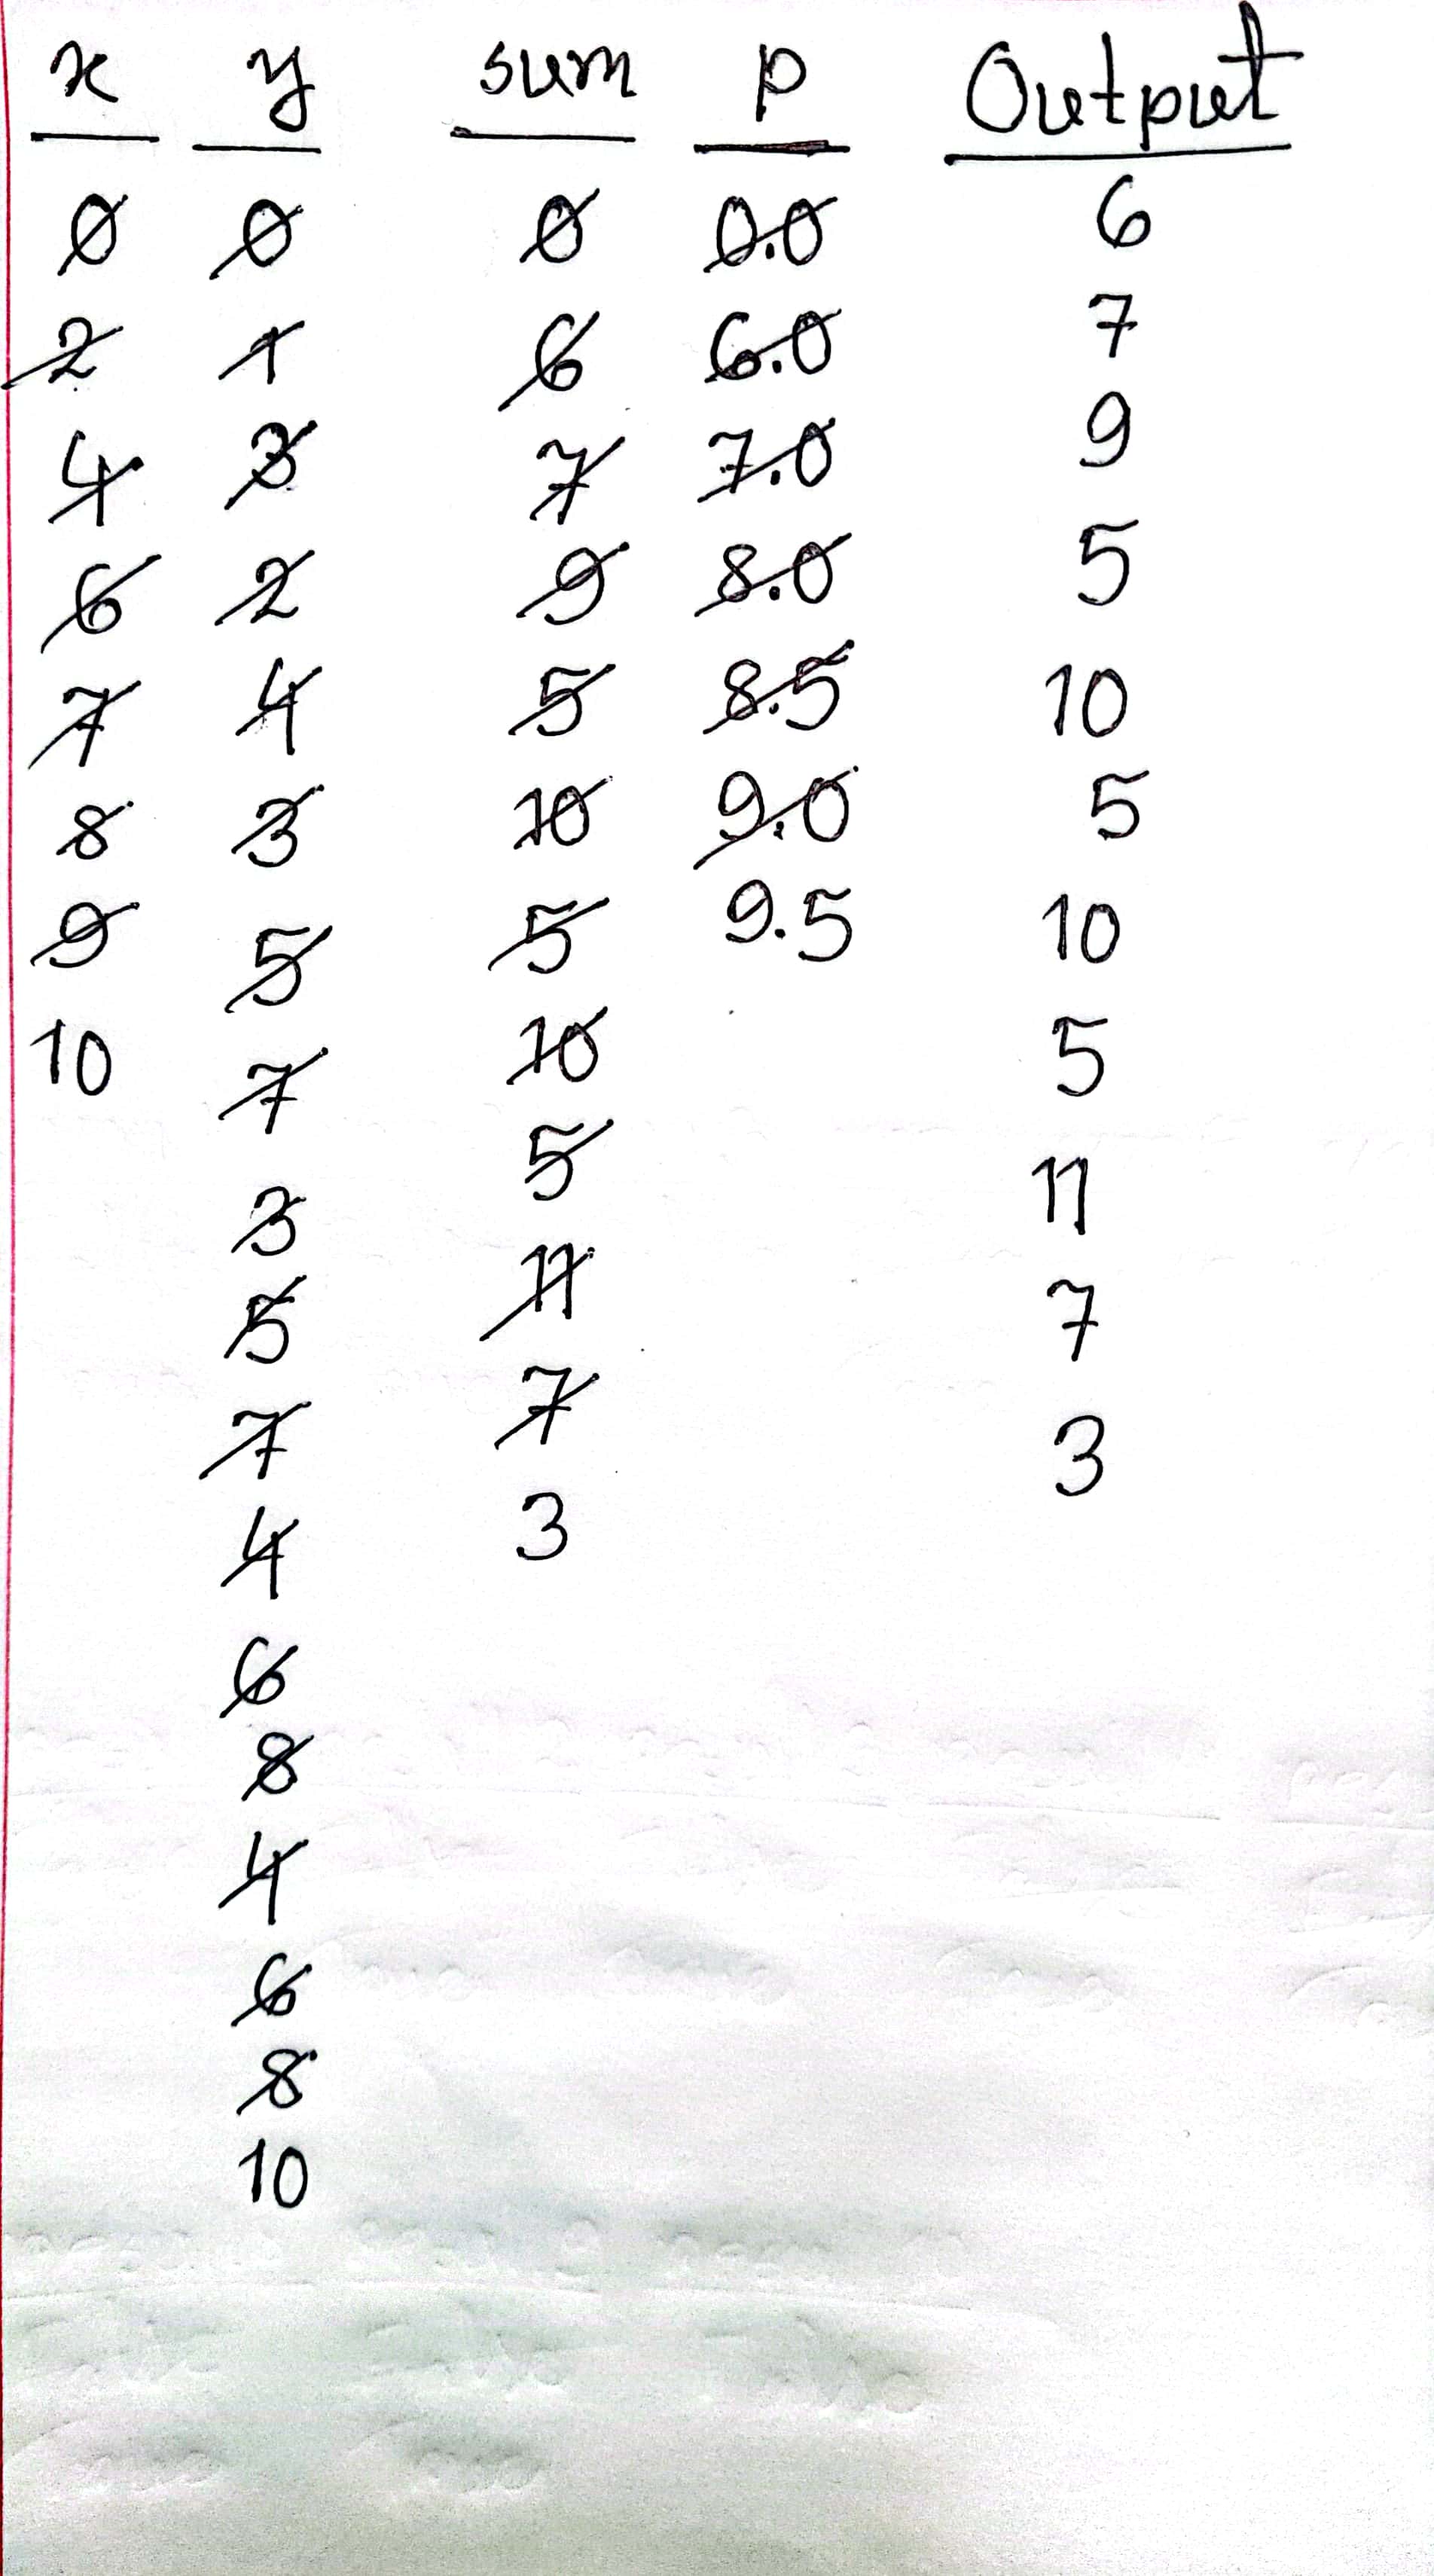 x y sum p Output
0 0 0 0.0 6
2 1 6 6.0 7
4 3 7 7.0 9
6 2 9 8.0 5
7 4 5 8.5 10
8 3 10 9.0 5
9 5 5 9.5 10
10 7 10 5
3 5 11
5 11 7
7 7 3
4 3
6
8
4
6
8
10